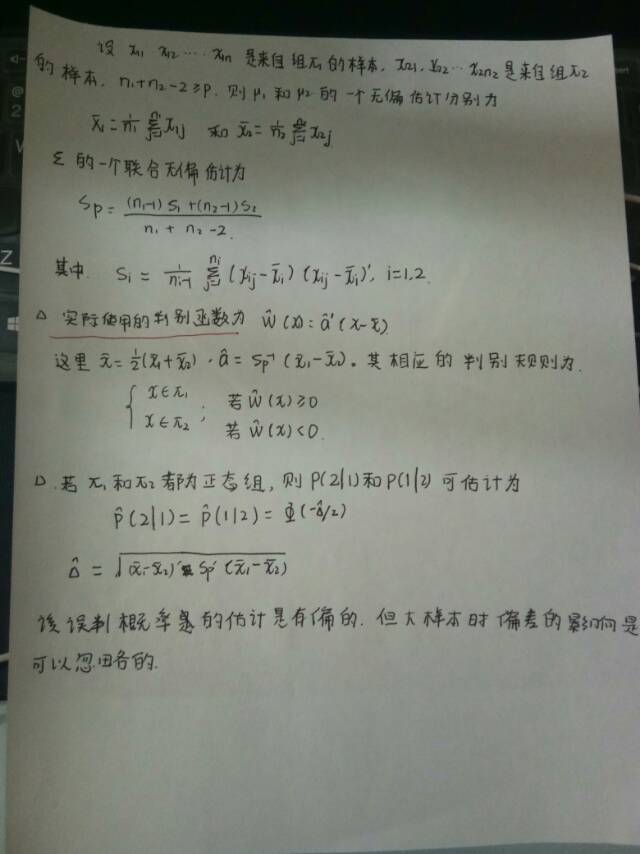 设 x₁₁ x₁₂ ⋯ x₁ₙ 是来自组π₁的样本, x₂₁, x₂₂ ⋯ x₂ₙ₂是来自组π₂
的样本, n₁+n₂-2≥p, 则μ₁和μ₂的一个无偏估计分别为
x̄₁ = 1/n₁ Σⱼ₌₁ⁿ¹ x₁ⱼ 和 x̄₂ = 1/n₂ Σⱼ₌₁ⁿ² x₂ⱼ
Σ的一个联合无偏估计为
Sp = ((n₁-1)S₁+(n₂-1)S₂)/(n₁+n₂-2)
其中. Sᵢ = 1/(nᵢ-1) Σⱼ₌₁ⁿⁱ (xᵢⱼ-x̄ᵢ)(xᵢⱼ-x̄ᵢ)', i=1,2.
△ 实际使用的判别函数为 Ŵ(x)=â'(x-x̄)
这里 x̄=½(x̄₁+x̄₂), â=Sp⁻¹(x̄₁-x̄₂)。其相应的判别规则为.
{ x∈π₁, 若Ŵ(x)≥0
x∈π₂, 若Ŵ(x)<0
△.若π₁和π₂都为正态组, 则P(2|1)和P(1|2)可估计为
P̂(2|1)=P̂(1|2)=Φ(-Δ̂/2)
Δ̂ = √((x̄₁-x̄₂)' Sp⁻¹ (x̄₁-x̄₂))
该误判概率的估计是有偏的. 但大样本时偏差的影响是
可以忽略的.